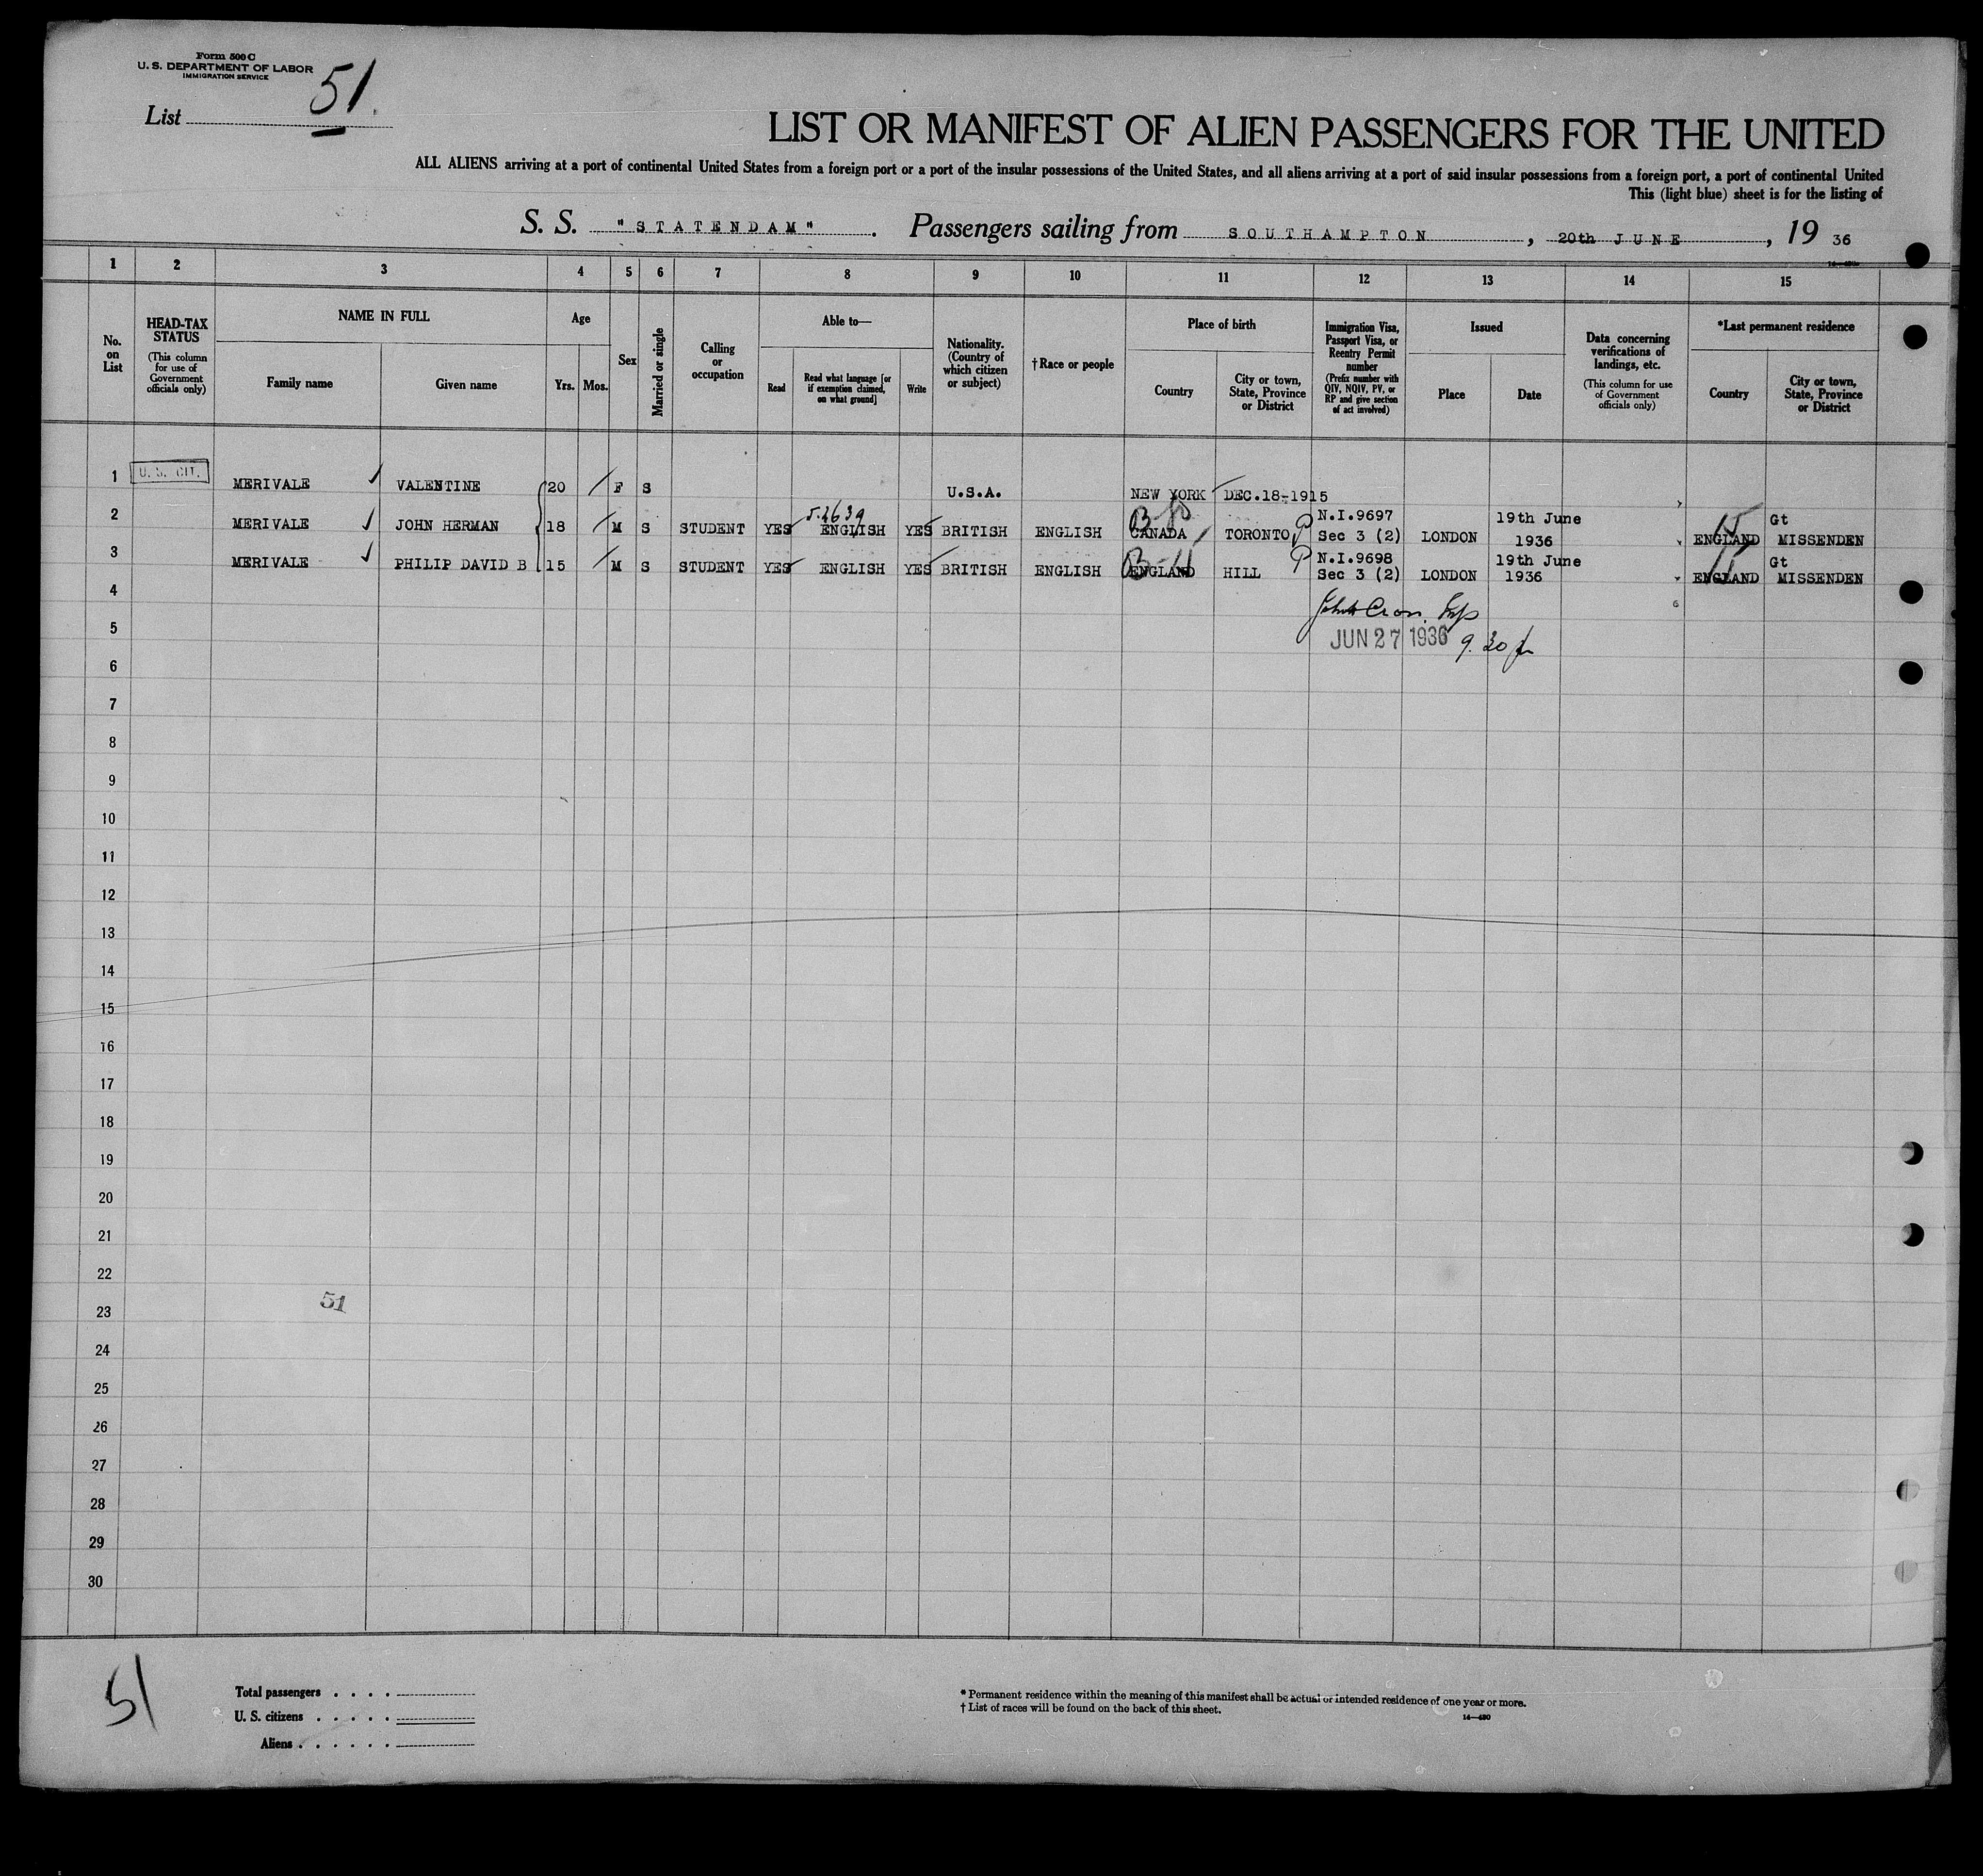 Form 500 C
U. S. DEPARTMENT OF LABOR
IMMIGRATION SERVICE
List 51.
LIST OR MANIFEST OF ALIEN PASSENGERS FOR THE UNITED
ALL ALIENS arriving at a port of continental United States from a foreign port or a port of the insular possessions of the United States, and all aliens arriving at a port of said insular possessions from a foreign port, a port of continental United
This (light blue) sheet is for the listing of
S. S. "STATENDAM". Passengers sailing from SOUTHAMPTON, 20th JUNE, 19 36
1 2 3 4 5 6 7 8 9 10 11 12 13 14 15
No. on List
HEAD-TAX STATUS
(This column for use of Government officials only)
NAME IN FULL
Family name
Given name
Age
Yrs.
Mos.
Sex
Married or single
Calling or occupation
Able to—
Read
Read what language [or if exemption claimed, on what ground]
Write
Nationality. (Country of which citizen or subject)
† Race or people
Place of birth
Country
City or town, State, Province or District
Immigration Visa, Passport Visa, or Reentry Permit number
(Prefix number with QIV, NQIV, PV, or RP and give section of act involved)
Issued
Place
Date
Data concerning verifications of landings, etc.
(This column for use of Government officials only)
*Last permanent residence
Country
City or town, State, Province or District
1 U. S. CIT. MERIVALE VALENTINE 20 F S U.S.A. NEW YORK DEC.18-1915
2 MERIVALE JOHN HERMAN 18 M S STUDENT YES ENGLISH YES BRITISH ENGLISH CANADA TORONTO N.I.9697 Sec 3 (2) LONDON 19th June 1936 ENGLAND Gt MISSENDEN
3 MERIVALE PHILIP DAVID B 15 M S STUDENT YES ENGLISH YES BRITISH ENGLISH ENGLAND HILL N.I.9698 Sec 3 (2) LONDON 19th June 1936 ENGLAND Gt MISSENDEN
4
5 JUN 27 1936 9.30
6
7
8
9
10
11
12
13
14
15
16
17
18
19
20
21
22
51
23
24
25
26
27
28
29
30
51
Total passengers . . . .
U. S. citizens . . . . .
Aliens . . . . . .
* Permanent residence within the meaning of this manifest shall be actual or intended residence of one year or more.
† List of races will be found on the back of this sheet.
14—430